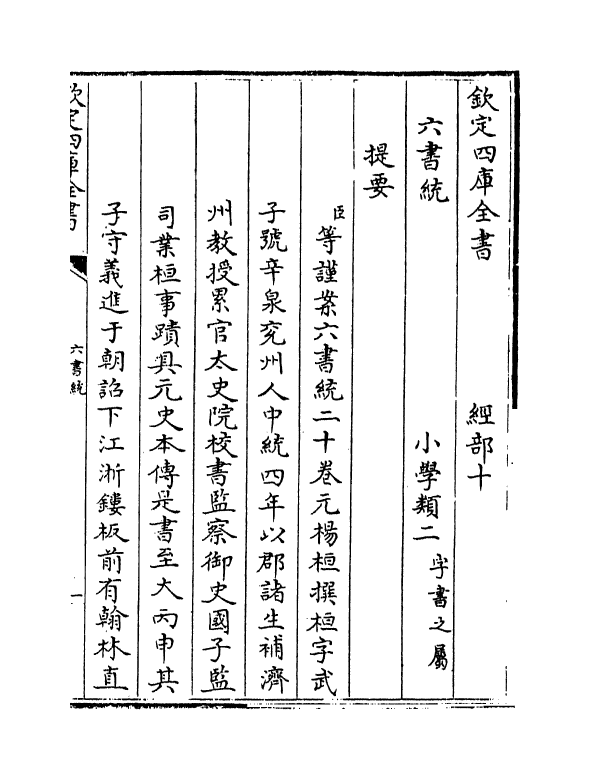 欽定四庫全書　經部十
六書統　小學類二字書之屬
提要
臣等謹案六書統二十卷元楊桓撰桓字武
子號辛泉兖州人中統四年以郡諸生補濟
州教授累官太史院校書監察御史國子監
司業桓事蹟具元史本傳是書至大丙申其
子守義進于朝詔下江浙鏤板前有翰林直
欽定四庫全書
六書統
一